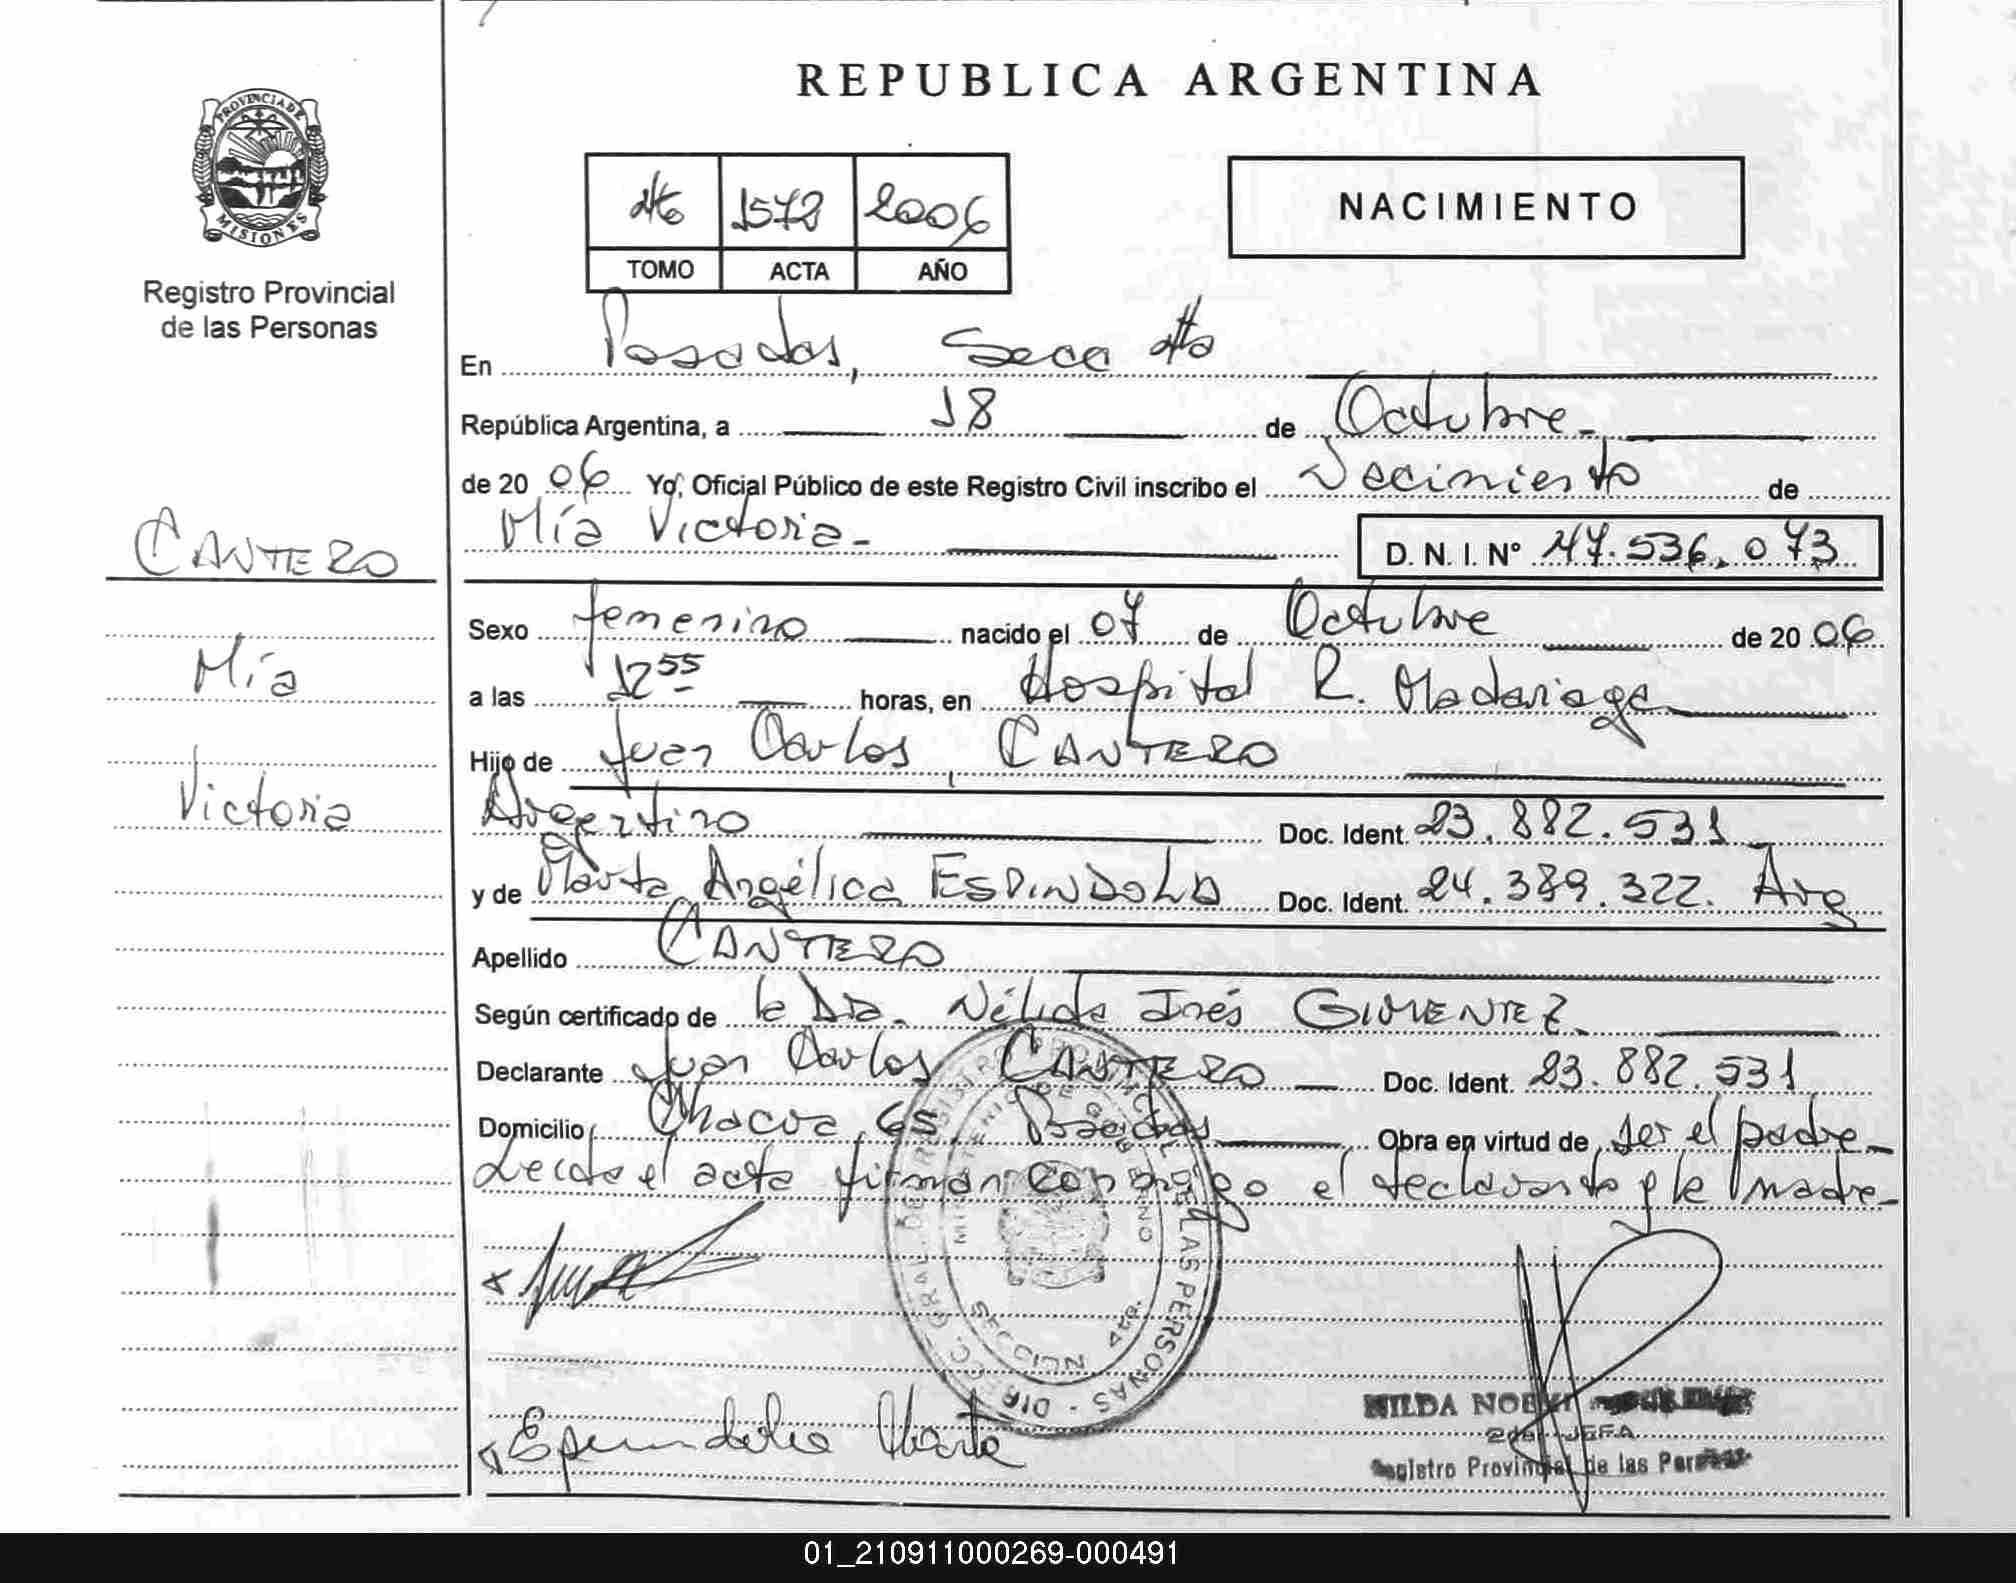 REPUBLICA ARGENTINA
PROVINCIA DE
MISIONES
Registro Provincial
de las Personas
4to 1572 2006
TOMO ACTA AÑO
NACIMIENTO
En Posadas, Secc 4ta
República Argentina, a 18 de Octubre
de 20 06 Yo, Oficial Público de este Registro Civil inscribo el Nacimiento de
Mía Victoria
D. N. I. N° 47.536.073
CANTERO
Mía
Victoria
Sexo femenino nacido el 07 de Octubre de 20 06
a las 12 55 horas, en Hospital R. Madariaga
Hijo de Juan Carlos CANTERO
Argentino Doc. Ident. 23.882.531
y de Marta Angélica ESPINDOLA Doc. Ident. 24.389.322. Arg
Apellido CANTERO
Según certificado de la Dra. Nélida Inés GIMENEZ
Declarante Juan Carlos CANTERO Doc. Ident. 23.882.531
Domicilio Chacra 65, Posadas Obra en virtud de ser el padre
Leída el acta firman conmigo el declarante y la madre
DIRECC. GRAL. DE REGISTRO PROVINCIAL DE LAS PERSONAS
MINISTERIO DE GOBIERNO
SECCION 4ta.
Espindola Marta
2da JEFA
Registro Provincial de las Personas
01_210911000269-000491